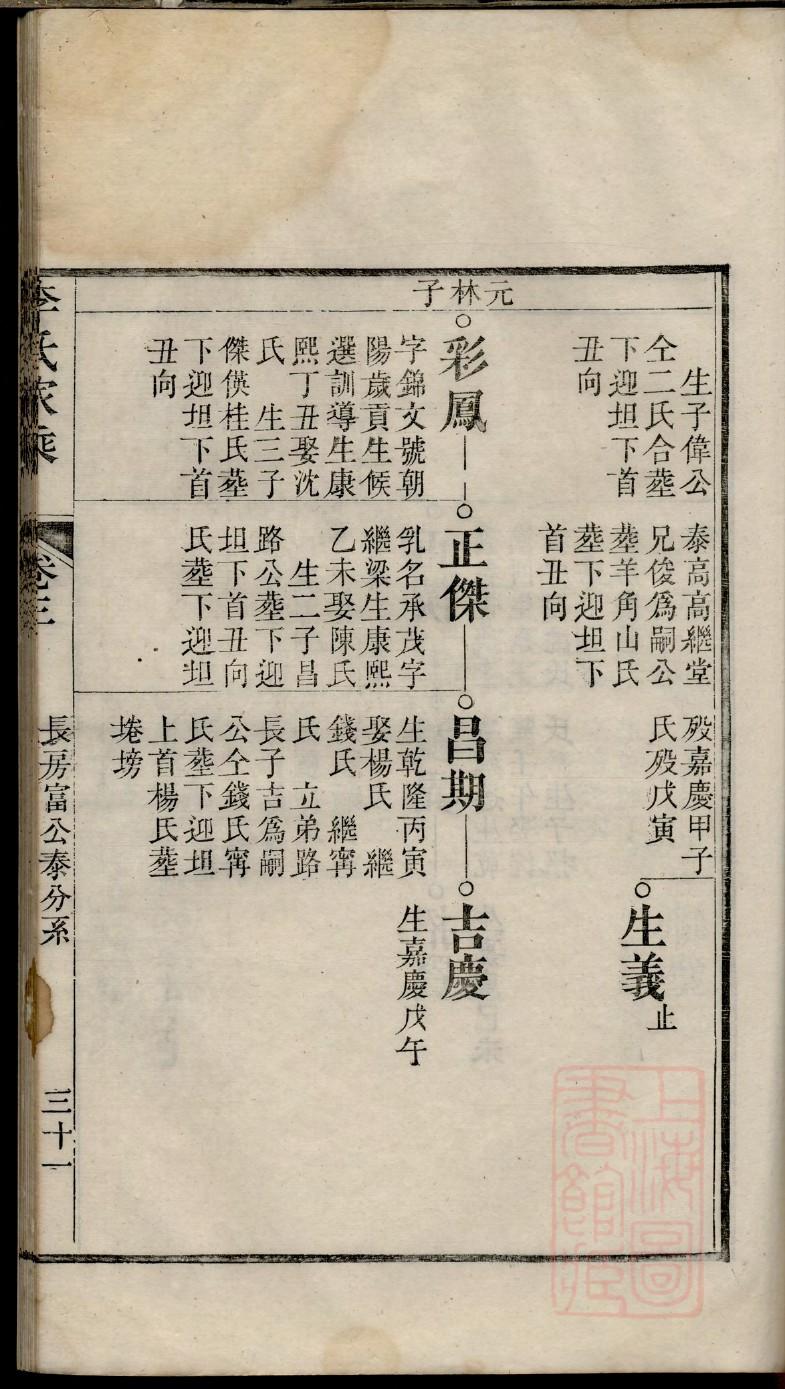 生子偉公
仝二氏合塟
下迎坦下首
丑向
泰高高繼堂
兄俊爲嗣公
塟羊角山氏
塟下迎坦下
首丑向
殁嘉慶甲子
氏殁戊寅
生義止
元林子
彩鳳
字錦文號朝
陽歲貢生候
選訓導生康
熙丁丑娶沈
氏 生三子
傑偀桂氏塟
下迎坦下首
丑向
正傑
乳名承茂字
繼梁生康熙
乙未娶陳氏
生二子昌
路公塟下迎
坦下首丑向
氏塟下迎坦
昌期
生乾隆丙寅
娶楊氏 繼
錢氏 繼甯
氏 立弟路
長子吉爲嗣
公仝錢氏甯
氏塟下迎坦
上首楊氏塟
埢塝
吉慶
生嘉慶戊午
李氏家乘
卷三
長房富公泰分系
三十一
上海圖書館藏